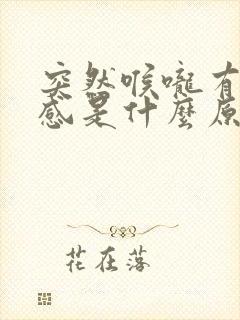 突然喉嚨有
感是什麼原
花在落